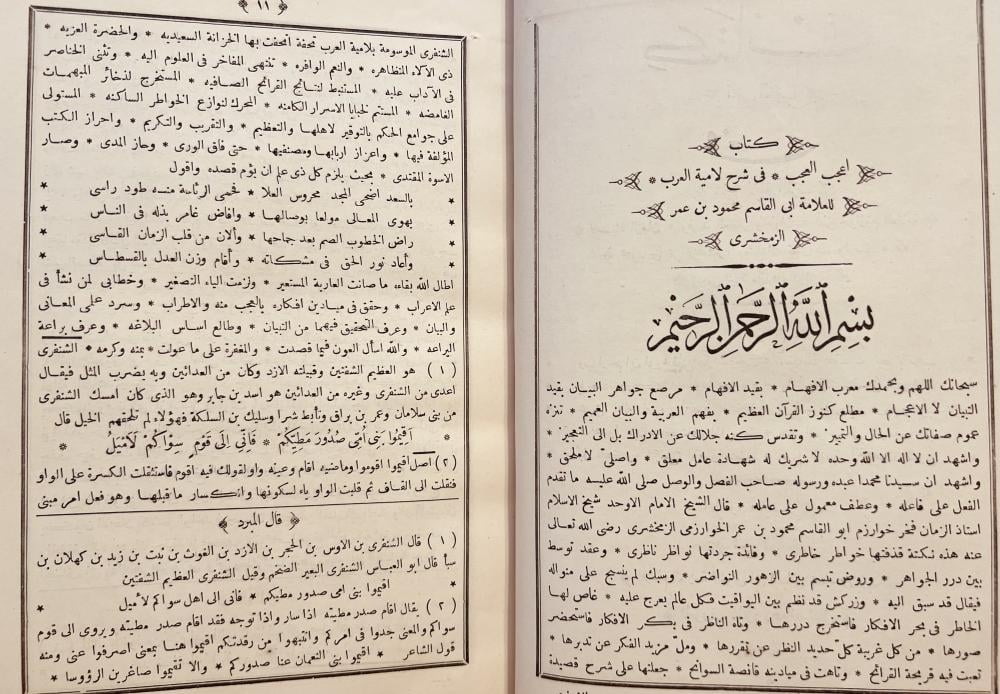 كتاب
اعجب العجب * فى شرح لامية العرب *
للعلامة ابى القاسم محمود بن عمر
الزمخشرى
بسم الله الرحمن الرحيم
سبحانك اللهم وبحمدك معرب الافهام * بقيد الافهام * مرصع جواهر البيان بقيد
التبيان لا الاعجام * مطلع كنوز القرآن العظيم * بفهم العربية والبيان العميم * تنزه
عموم صفاتك عن الحال والتمييز * وتقدس كنه جلالك عن الادراك بل الى التعجيز *
واشهد ان لا اله الا الله وحده لا شريك له شهادة عامل معلق * واصلى لا ملحق *
واشهد ان سيدنا محمدا عبده ورسوله صاحب الفصل والوصل صلى الله عليه ما تقدم
الفعل على فاعله * وعطف معمول على عامله * قال الشيخ الامام الاوحد شيخ الاسلام
استاذ الزمان فخر خوارزم ابو القاسم محمود بن عمر الخوارزمى الزمخشرى رضى الله تعالى
عنه هذه نكتة قذفتها خواطر خاطرى * وفائدة جردتها نواظر ناظرى * وعقد توسط
بين درر الجواهر * وروض تبسم بين الزهور النواضر * وسبك لم ينسج على منواله
فيقال قد سبق اليه * وزركش قد نظم بين اليواقيت فكل عالم يعرج عليه * غاص لها
الخاطر فى بحر الافكار فاستخرج دررها * وتاه الناظر فى بكر الافكار فاستحضر
صورها * من كل غريبة كل حديد النظر عن تقررها * ومل مزيد الفكر عن تدبرها *
تعبت فيه قريحة القرائح * وتاهت فى ميادينه قانصة السوانح * جعلتها على شرح قصيدة
١١
الشنفرى الموسومة بلامية العرب تحفة اتحفت بها الخزانة السعيديه * والحضرة العزيه *
ذى الآلاء المتظاهره * والنعم الوافره * تنتهى المفاخر فى العلوم اليه * وتثنى الخناصر
فى الآداب عليه * المستنبط لنتائج القرائح الصافيه * المستخرج لذخائر المبهمات
الغامضه * المستتم لخبايا الاسرار الكامنه * المحرك لنوازع الخواطر الساكنه * المستولى
على جوامع الحكم بالتوقير لاهلها والتعظيم * والتقريب والتكريم * واحراز الكتب
المؤلفة فيها * واعزاز اربابها ومصنفيها * حتى فاق الورى * وحاز المدى * وصار
الاسوة المقتدى * بحيث يلزم كل ذى علم ان يؤم قصده واقول
* بالسعد اضحى المجد محروس العلا * فحمى الرئاسة منه طود راسى *
* يهوى المعالى مولعا بوصالها * وافاض غامر بذله فى الناس *
* راض الخطوب الصم بعد جماحها * وألان من قلب الزمان القاسى *
* وأعاد نور الحق فى مشكاته * وأقام وزن العدل بالقسطاس *
اطال الله بقاءه ما صانت العارية المستعير * ولزمت الياء التصغير * وخطابى لمن نشأ فى
علم الاعراب * وحقق فى ميادين افكاره بالعجب منه والاطراب * وسرد على المعانى
والبيان * وعرف التحقيق فيهما من التبيان * وطالع اساس البلاغه * وعرف براعة
اليراعه * والله اسأل العون فيما قصدت * والمغفرة على ما عولت * بمنه وكرمه * الشنفرى
(١) هو العظيم الشفتين وقبيلته الازد وكان من العدائين وبه يضرب المثل فيقال
اعدى من الشنفرى وغيره من العدائين هو اسد بن جابر وهو الذى كان امسك الشنفرى
من بنى سلامان وعمر بن براق وتأبط شرا وسليك بن السلكة فهؤلاء لم تلحقهم الخيل قال
* اَقِيمُوا بَنِى اُمِّى صُدُورَ مَطِيِّكُمْ * فَاِنِّى اِلَى قَوْمٍ سِوَاكُمْ لَاَمْيَلُ *
(٢) اصل اقيموا اقوموا وماضيه اقام وعينه واو لقولك فيه اقوم فاستثقلت الكسرة على الواو
فنقلت الى القاف ثم قلبت الواو ياء لسكونها وانكسار ما قبلها وهو فعل امر مبنى
قال المبرد
(١) قال الشنفرى بن الاوس بن الحجر بن الازد بن الغوث بن نبت بن زيد بن كهلان بن
سبأ قال ابو العباس الشنفرى البعير الضخم وقيل الشنفرى العظيم الشفتين
* اقيموا بنى امى صدور مطيكم * فانى الى اهل سواكم لأميل *
(٢) يقال اقام صدر مطيته اذا سار واذا توجه فقد اقام صدر مطيته ويروى الى قوم
سواكم والمعنى جدوا فى امركم وانتبهوا من رقدتكم اقيموا هنا بمعنى اصرفوا عنى ومنه
قول الشاعر * اقيموا بنى النعمان عنا صدوركم * والا تقيموا صاغرين الرؤوسا *